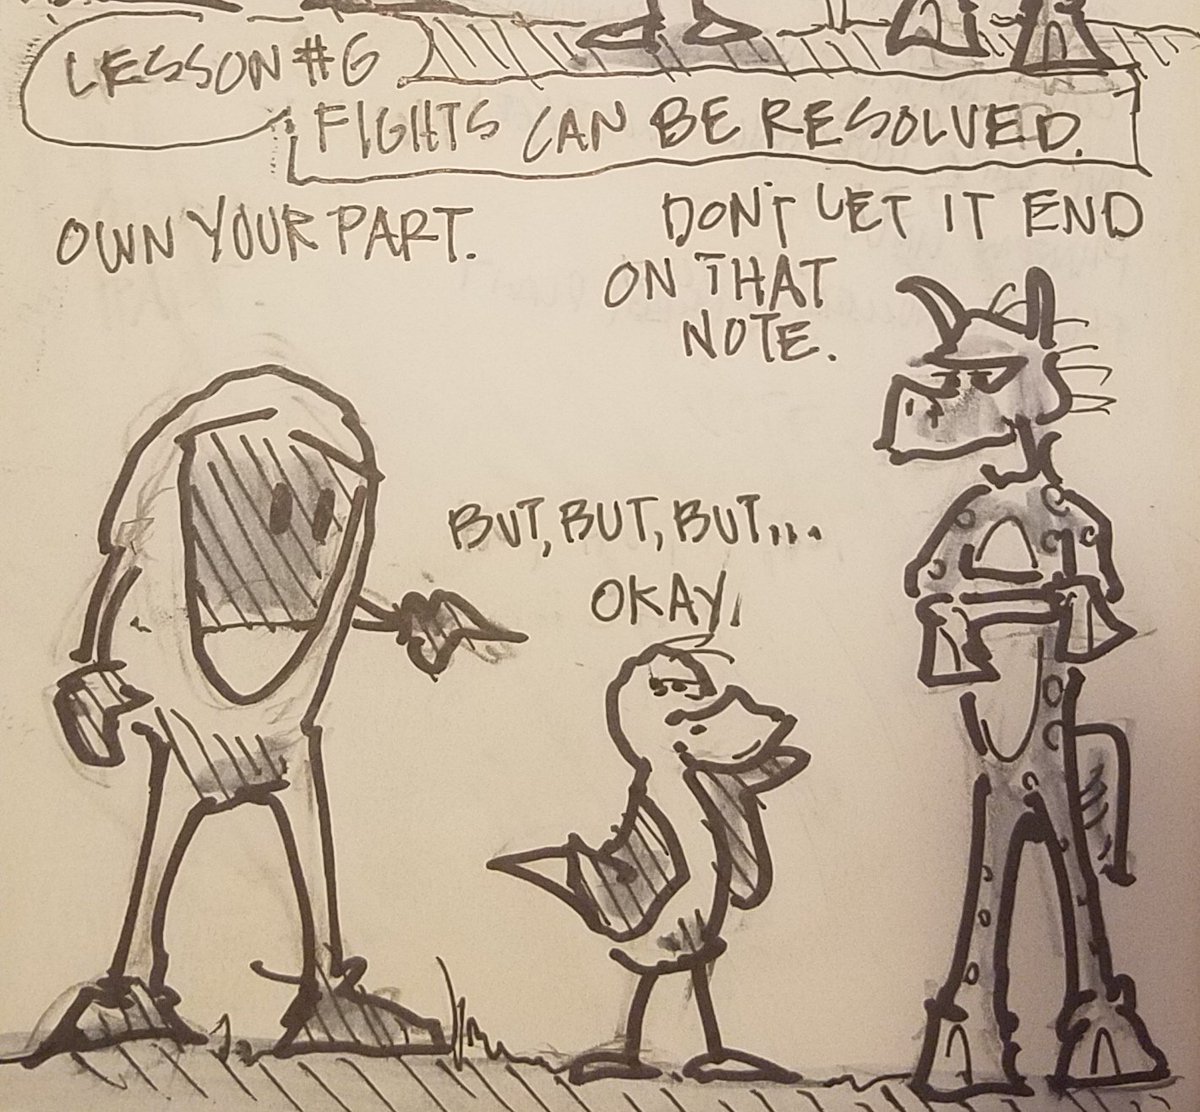 LESSON #6
FIGHTS CAN BE RESOLVED.
OWN YOUR PART.
DON'T LET IT END
ON THAT
NOTE.
BUT, BUT, BUT...
OKAY.